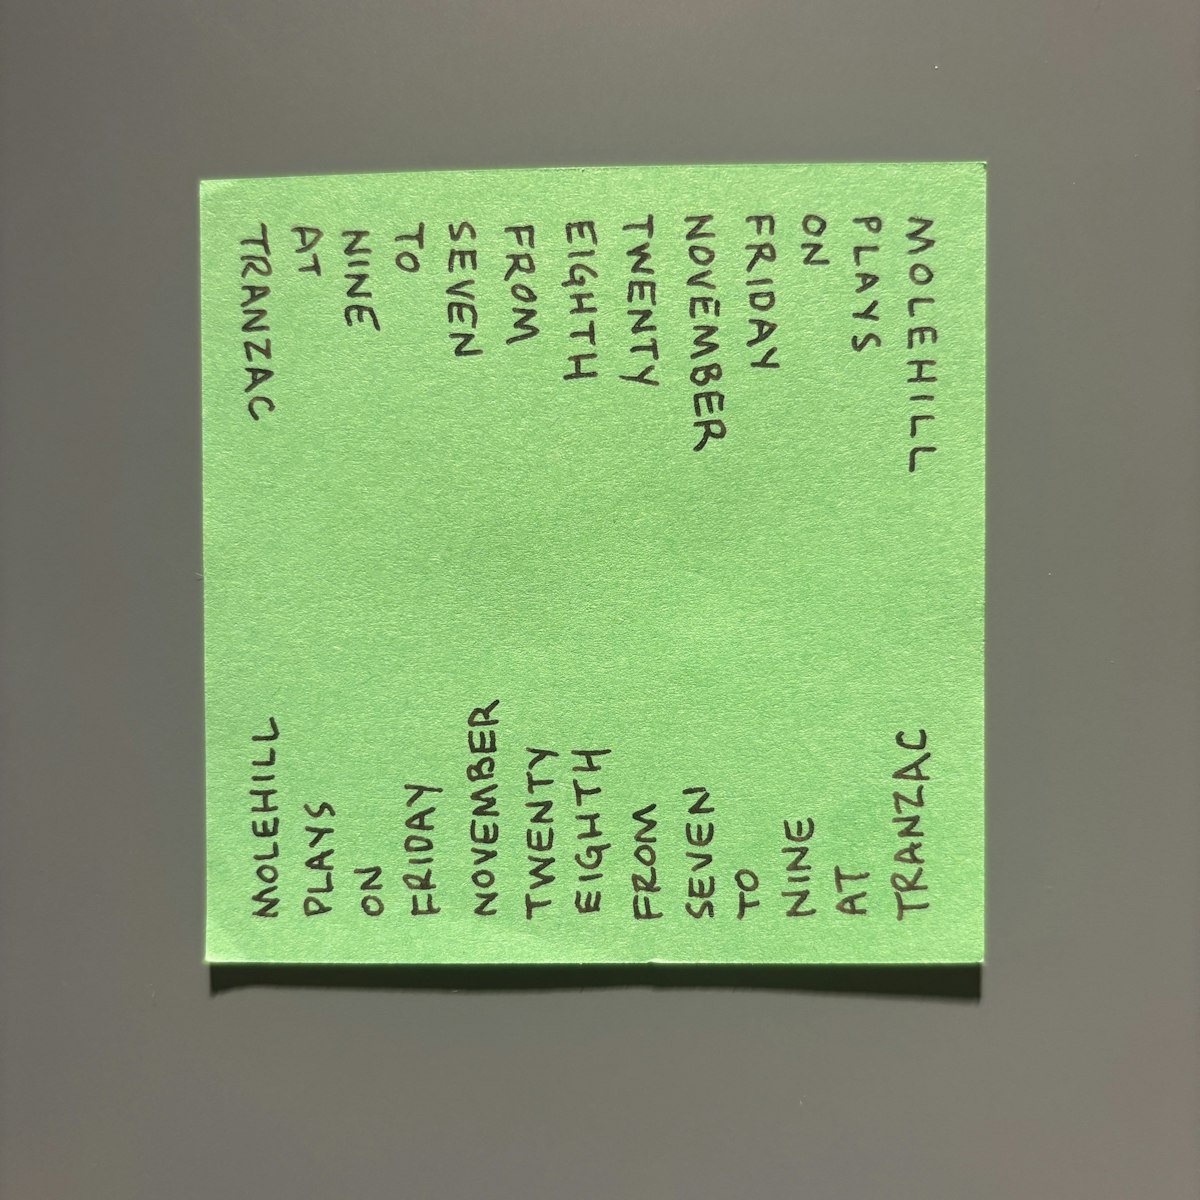 MOLEHILL
PLAYS
ON
FRIDAY
NOVEMBER
TWENTY
EIGHTH
FROM
SEVEN
TO
NINE
AT
TRANZAC
MOLEHILL
PLAYS
ON
FRIDAY
NOVEMBER
TWENTY
EIGHTH
FROM
SEVEN
TO
NINE
AT
TRANZAC